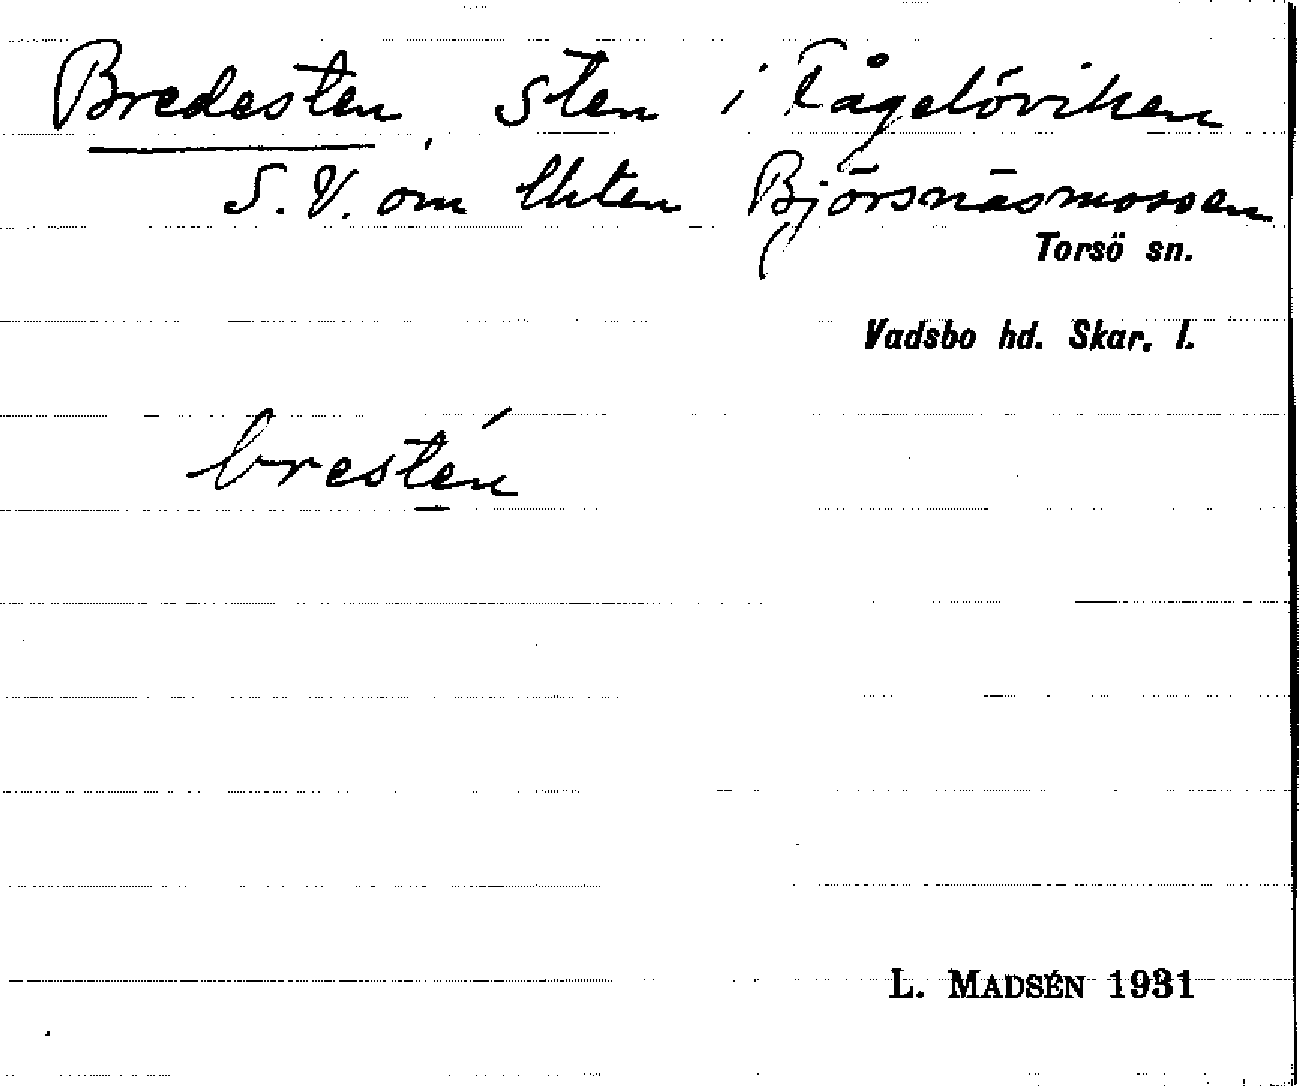 Bredesten, sten i Fågelöviken
S.V. om Björsnäsmossen
Torsö sn.
Vadsbo hd. Skar. l.
brestén
L. MADSÉN 1931